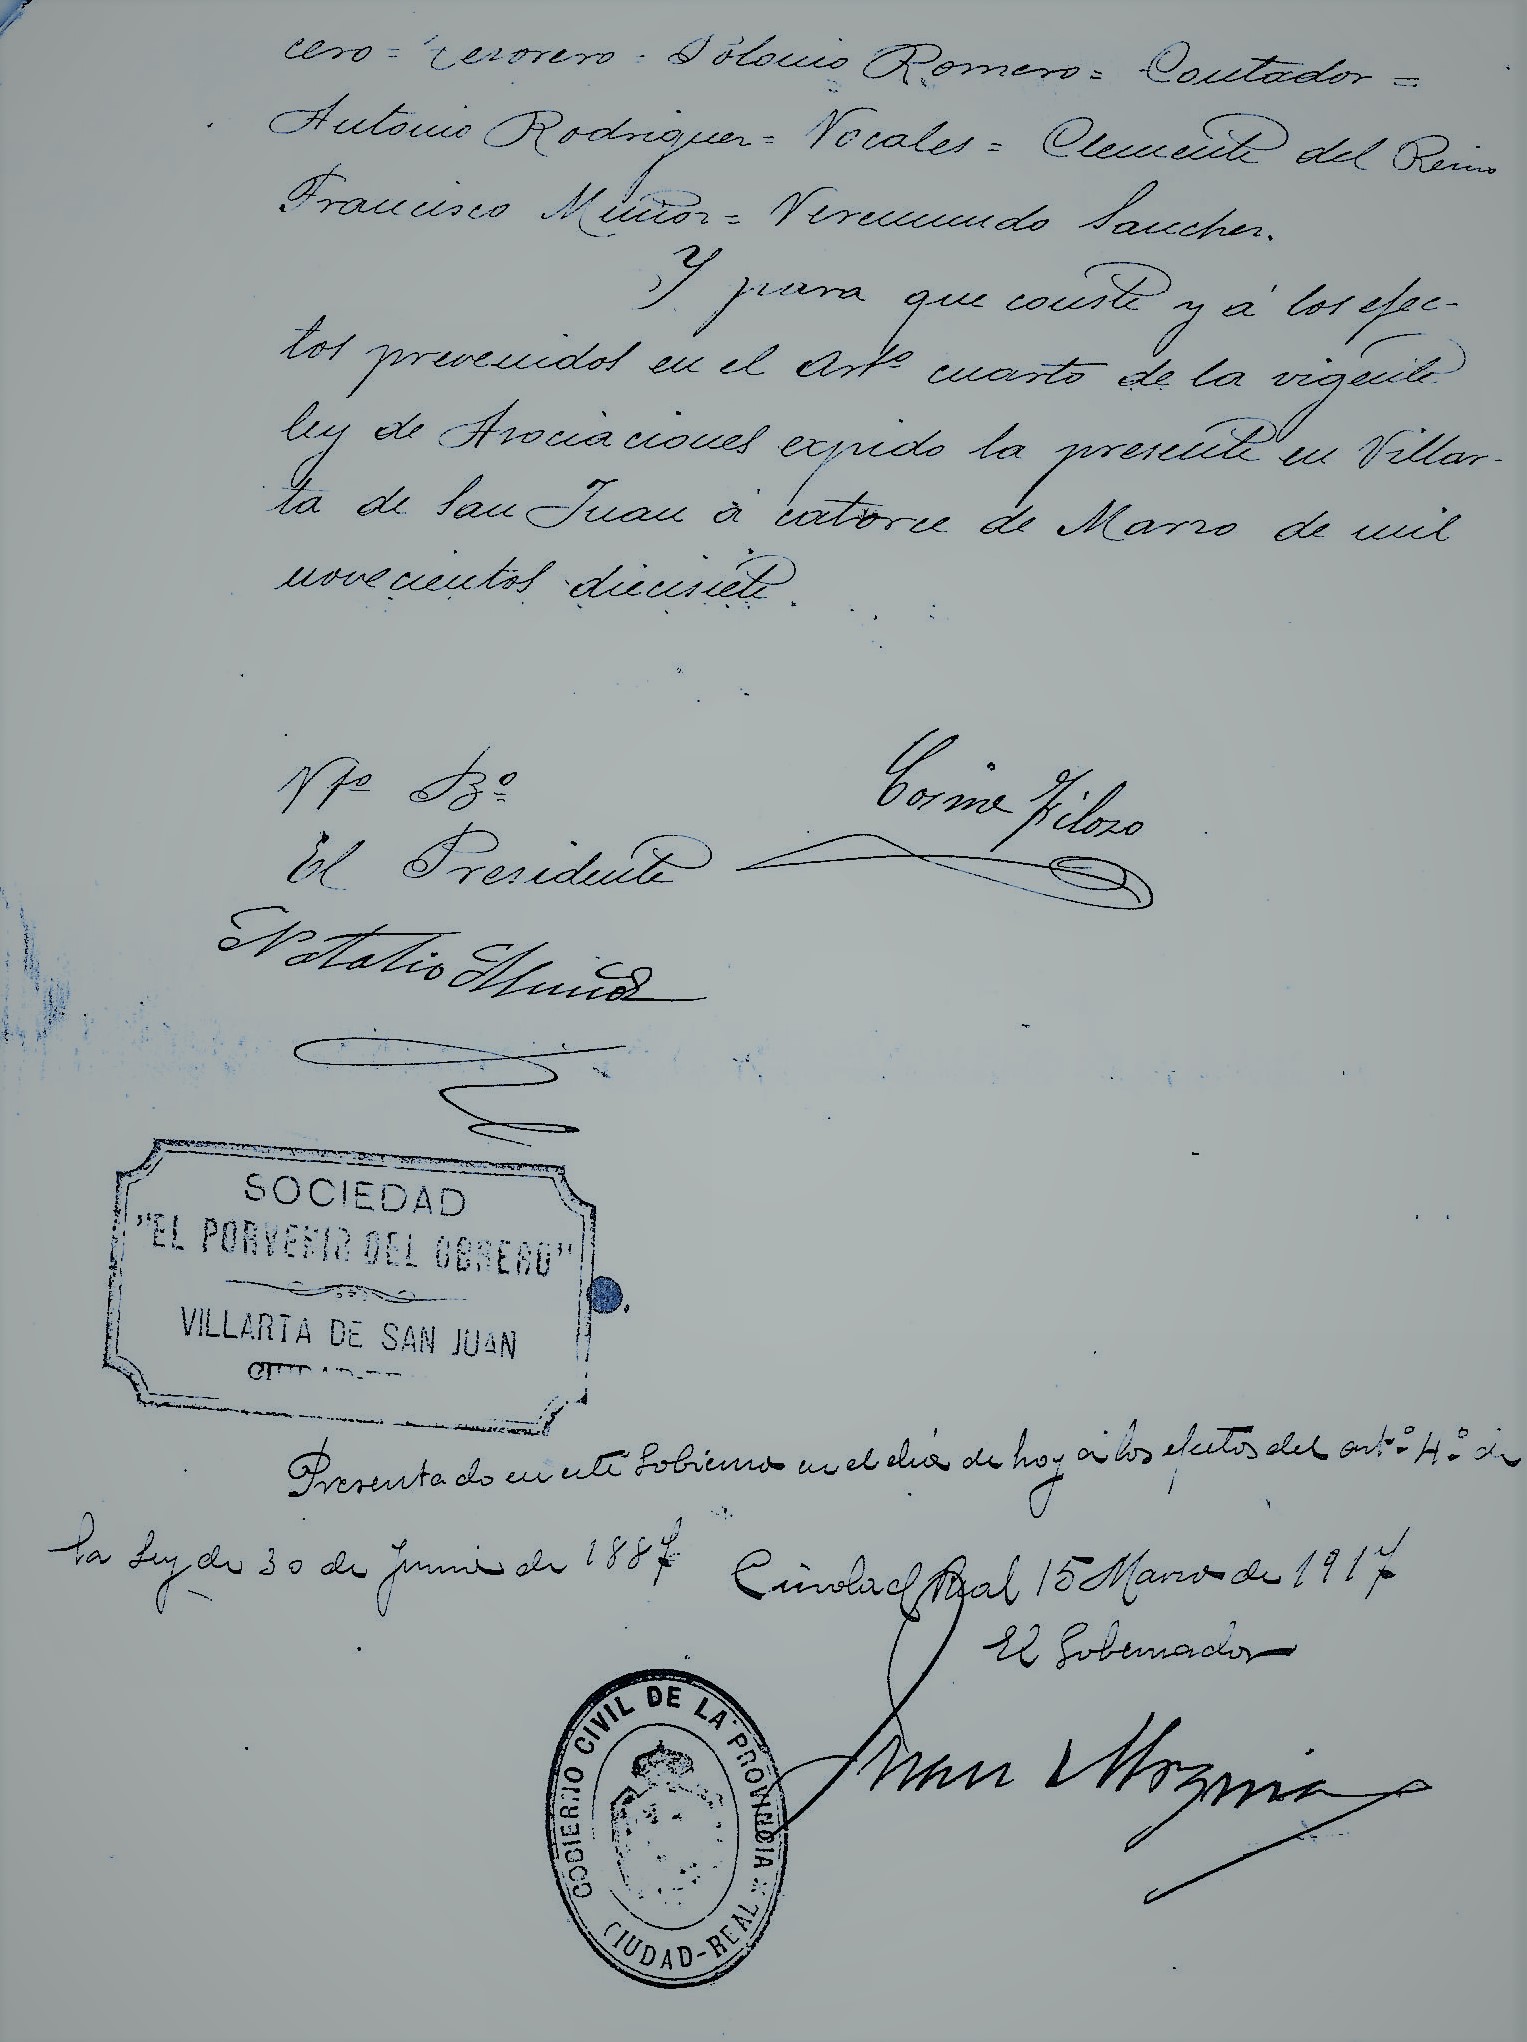 cero = Tesorero = Polonio Romero = Contador =
Antonio Rodriguez = Vocales = Clemente del Reino
Francisco Muñoz = Veremundo Sanchez.
Y para que conste y á los efec-
tos prevenidos en el Artº cuarto de la vigente
ley de Asociaciones expido la presente en Villar-
ta de San Juan á catorce de Marzo de mil
novecientos diecisiete.
Vtº Bº
Cosme Filoso
El Presidente
Natalio Muñoz
SOCIEDAD
"EL PORVENIR DEL OBRERO"
VILLARTA DE SAN JUAN
Presentado en este Gobierno en el día de hoy á los efectos del artº 4º de
la Ley de 30 de Junio de 1887
Ciudad Real 15 Marzo de 1917
El Gobernador
Juan
GOBIERNO CIVIL DE LA PROVINCIA
CIUDAD-REAL